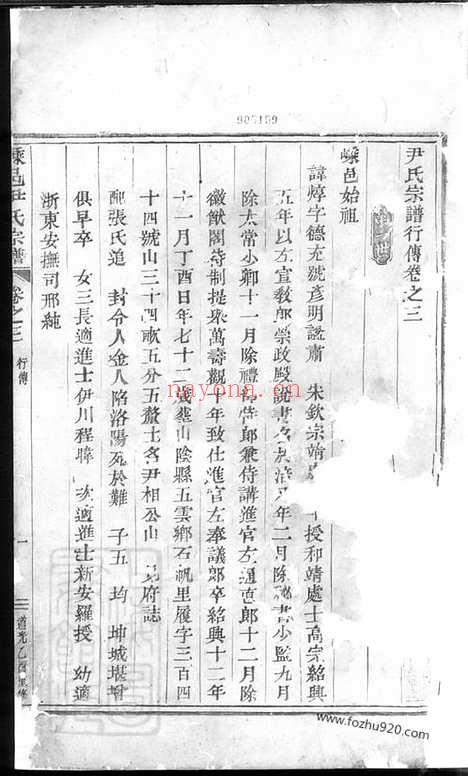 905159
尹氏宗譜行傳卷之三
嵊邑始祖
諱焞字德充號彥明諡肅 宋欽宗靖 授和靖處士高宗紹興
五年以左宣敎郎崇政殿說書 八年二月除祕書少監九月
除太常小卿十一月除禮部侍郎兼侍講進官左通直郎十二月除
徽猷閣待制提舉萬壽觀十年致仕進官左奉議郎卒紹興十二年
十一月丁酉日年七十二歲塟山陰縣五雲鄉石帆里履字三百四
十四號山三十四畝五分五釐土名尹相公山 府誌
配張氏追 封令人金人陷洛陽死於難 子五 均 坤 城 堪 增
俱早卒 女三長適進士伊川程暐 次適進士新安羅授 幼適
浙東安撫司邢純
嵊邑尹氏宗譜 卷之三 行傳 一 道光乙酉重修
nayona.cn
www.fozhu920.com